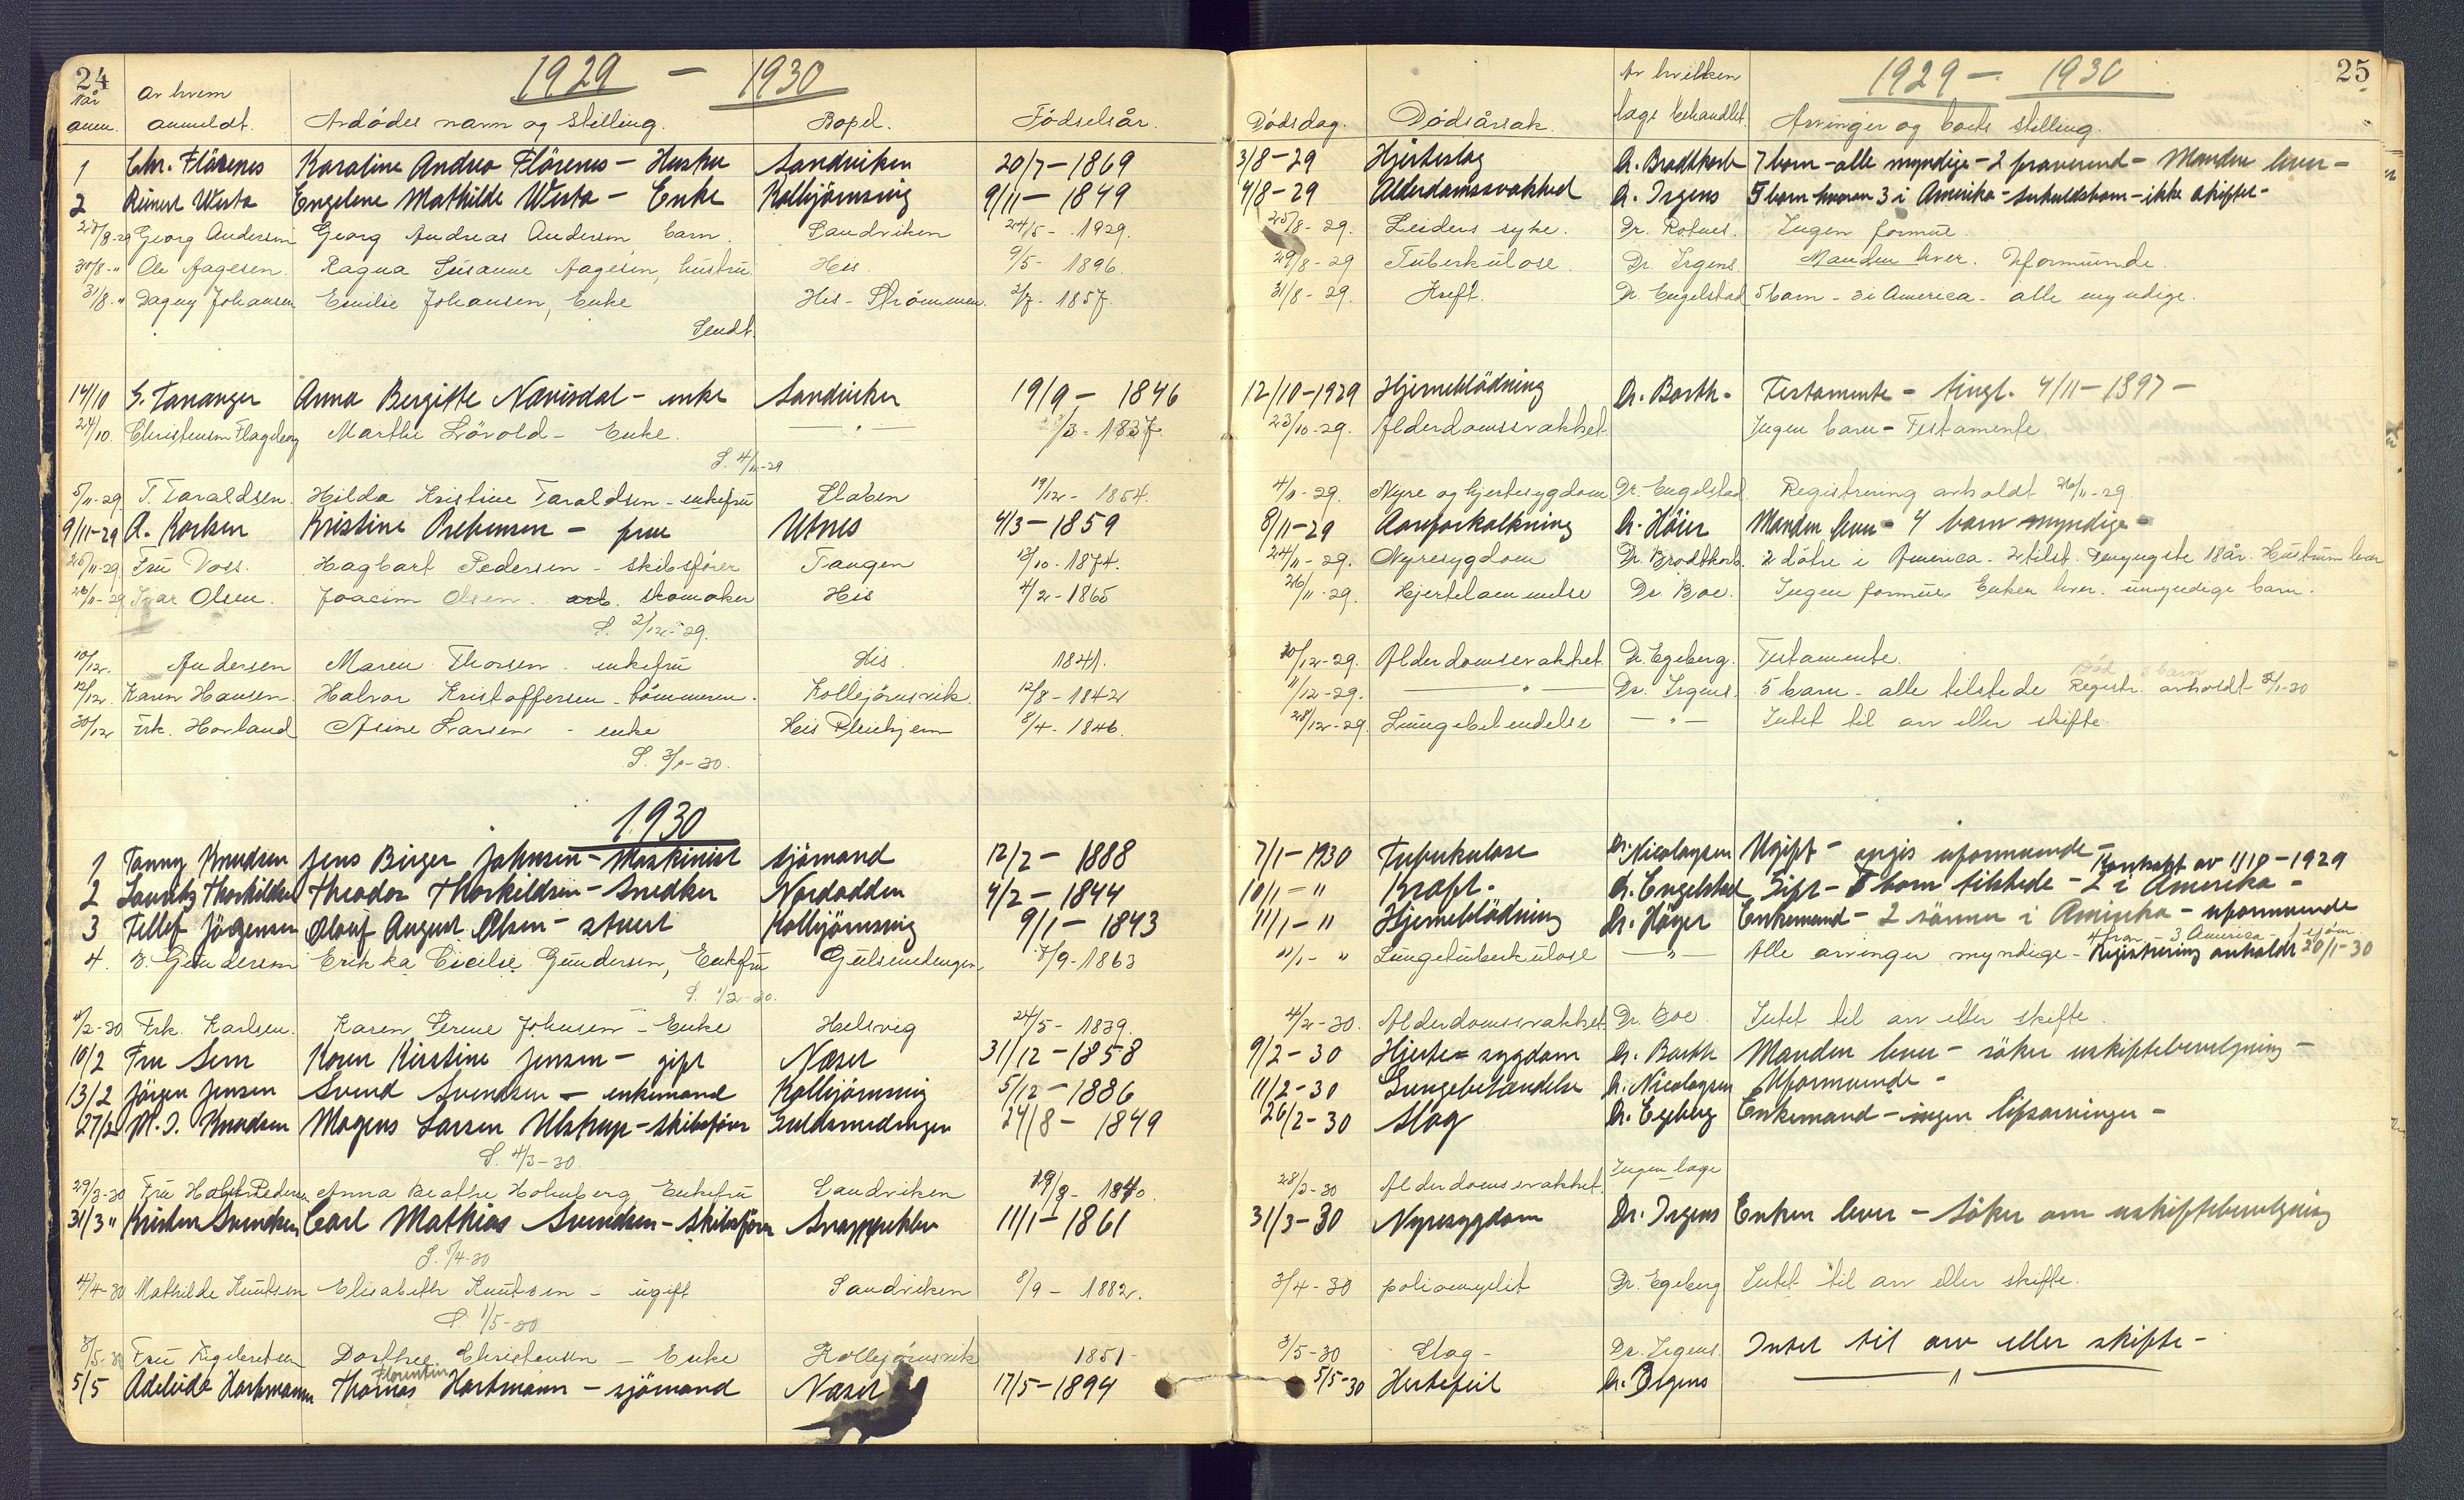 24
1929 — 1930
Når anm. Av hvem anmeldt. Avdødes navn og Stilling. Bopel. Fødselsår.
1 Chr. Flörenes Karoline Andrea Flörenes - Hustru Sandviken 20/7 - 1869
2 Reinert Westa Engeline Mathilde Westa - Enke Kolbjörnsvig 9/11 - 1849
27/8-29 Georg Andersen Georg Andreas Andersen barn. Sandviken 24/5 - 1929.
30/8-" Ole Aagesen. Ragna Susanne Aagesen, hustru His. 9/5 - 1896.
31/8-" Dagny Johansen Emilie Johansen, Enke His - Strømmen. 2/7 - 1857.
Sendt.
14/10 S. Tananger Anna Bergitte Nævisdal - enke Sandviken 19/9 - 1846
24/10. Christensen Flageborg Marthe Lövold - Enke. — " — /3 - 1837.
S. 4/11-29
5/11-29 T. Taraldsen. Hilda Kristine Taraldsen - enkefru Staben 19/12 - 1854.
9/11-29 A. Korken Kristine Prebensen - frue Utnes 4/3 - 1859
25/11-29 Fru Voss. Hagbart Pedersen - skibsfører Tangen 13/10 - 1874.
26/11-29 Ivar Olsen. Joacim Olsen. arb. skomaker His 4/2 - 1865
S. 2/12-29.
10/12. Andersen Maren Thorsen - enkefru His. 1841.
12/12. Karen Hansen. Halvor Kristoffersen - tömmerm. Kolbjörnsvik. 12/8 - 1842
30/12 Frk. Hovland Asine Larsen - enke His Pleiehjem 8/4 - 1846.
S. 3/1-30.
1930
1 Fanny Knudsen Jens Birger Johnsen - Maskinist sjömand 12/2 - 1888
2 Lauritz Thorkildsen Theodor Thorkildsen - Snedker Nordodden 4/2 - 1844
3 Tellef Jörgensen Olouf August Olsen - stuert Kolbjörnsvig 9/1 - 1843
4. B. Gundersen Erikka Cicilie Gundersen, Enkefru Gulsmedengen. 7/9 - 1863
S. 1/2-30.
4/2-30 Frk. Karlsen. Karen Serine Johnsen - Enke Helsvig 24/5 - 1839.
10/2 Fru Sem Karen Kirstine Jensen - gift Næset 31/12 - 1858
13/2 Jörgen Jensen Svend Svendsen - enkemand Kolbjörnsvig 5/12 - 1886
27/2 M. J. Knudsen Magnus Larsen Ulstrup - skibsfører Guldsmedengen 24/8 - 1849
S. 4/3-30.
29/3-30 Fru Pedersen Anna Beathe Holmberg Enkefru Sandviken 19/9 - 1840.
31/3 " Kristen Svendsen Carl Mathias Svendsen - Skibsförer Snappekleiv 11/1 - 1861
S. 1/4-30
4/4-30 Mathilde Knutsen Elisabeth Knutsen - ugift Sandviken 8/9 - 1882.
S. 1/5-30
3/5-30 Fru Engebretsen Dorthee Christensen - Enke Kolbjörnsvik 1851 -
Florentin
5/5 Adeleide Hartmann Thomas Hartmann - sjömand Næset 17/5 - 1894
25
1929 — 1930
Dødsdag. Dødsårsak. Av hvilken læge behandlet. Arvinger og boets stilling.
3/8-29 Hjerteslag Dr. Brodtkorb 7 barn - alle myndige - 2 fraverend - Manden lever -
4/8-29 Alderdomssvakhed Dr. Irgens 5 barn hvorav 3 i Amerika - ikke skiftet -
25/8-29. Leiders syke. Dr. Rotnes. Ingen formue.
29/8-29 Tuberkulose. Dr. Irgens. Manden lever. Uformuende.
31/8-29. Kreft. Dr. Engelstad 5 barn - 3 i America - alle myndige.
12/10-1929 Hjerneblödning Dr. Barth - Testamente - tingl. 4/11-1897 -
23/10-29. Alderdomssvakhet Ingen barn - Testamente.
4/11-29. Nyre og hjertesygdom Dr. Engelstad Registrering avholdt 26/11-29.
8/11-29 Aareforkalkning Dr. Höier Manden lever - 4 barn myndige -
24/11-29. Nyresygdom Dr. Brodtkorb. 2 døtre i America - 2 tilst. Den yngste 18 år. Hustruen lever
26/11-29. Hjertelammelse Dr. Boe. Ingen formue Enken lever. umyndige barn.
10/12-29. Alderdomssvakhet. Dr. Egeberg. Testamente.
Død barn
11/12-29. — " — Dr. Irgens. 5 barn - alle tilstede Registr. avholdt 3/1-30
28/12-29. Lungebetendelse — " — Intet til arv eller skifte.
7/1-1930 Tuberkulose Dr. Nicolaysen Ugift - opgis uformuende -
Kontrakt av 1/10-1929
10/1-" Kræft - Dr. Engelstad Gift - 5 barn tilstede - 2 i Amerika -
11/1-" Hjerneblödning Dr. Höyer Enkemand - 2 sönner i Amerika - uformuende
3 America - 1 sjöm.
11/1-" Lungetuberkulose — " — Alle arvinger myndige - Registrering avholdt 20/1-30
4/2-30. Alderdomssvakhet Dr. Boe. Intet til arv eller skifte.
9/2-30 Hjerte- sygdom Dr. Barth Manden lever - söker uskiftebevilgning -
11/2-30 Lungebetændelse Dr. Nicolaysen Uformuende -
26/2-30 Slag Dr. Egeberg Enkemand - ingen livsarvinger -
28/3-30 Alderdomssvakhet. Ingen læge
31/3-30 Nyresygdom Dr. Irgens Enken lever - Söker om uskiftebevilgning
3/4-30 poliomyelit Dr. Egeberg Intet til arv eller skifte.
3/5-30 Slag - Dr. Irgens. Intet til arv eller skifte -
5/5-30 Hertefeil Dr. Irgens — " —